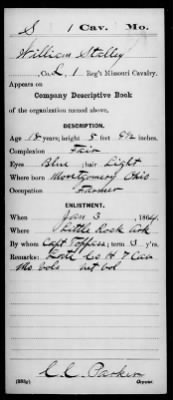 S | 1 | Cav. | Mo.
William Stalley
Co. L, 1 Reg't Missouri Cavalry.
Appears on
Company Descriptive Book
of the organization named above.
DESCRIPTION.
Age 18 years; height 5 feet 5½ inches.
Complexion Fair
Eyes Blue; hair Light
Where born Montgomery Ohio
Occupation Farmer
ENLISTMENT.
When Jan 3, 1864.
Where Little Rock Ark
By whom Capt; term 3 y'rs.
Remarks: Late Co H 7 Cav
Mo Vols Vet vol
C. C. Parker
Copyist.